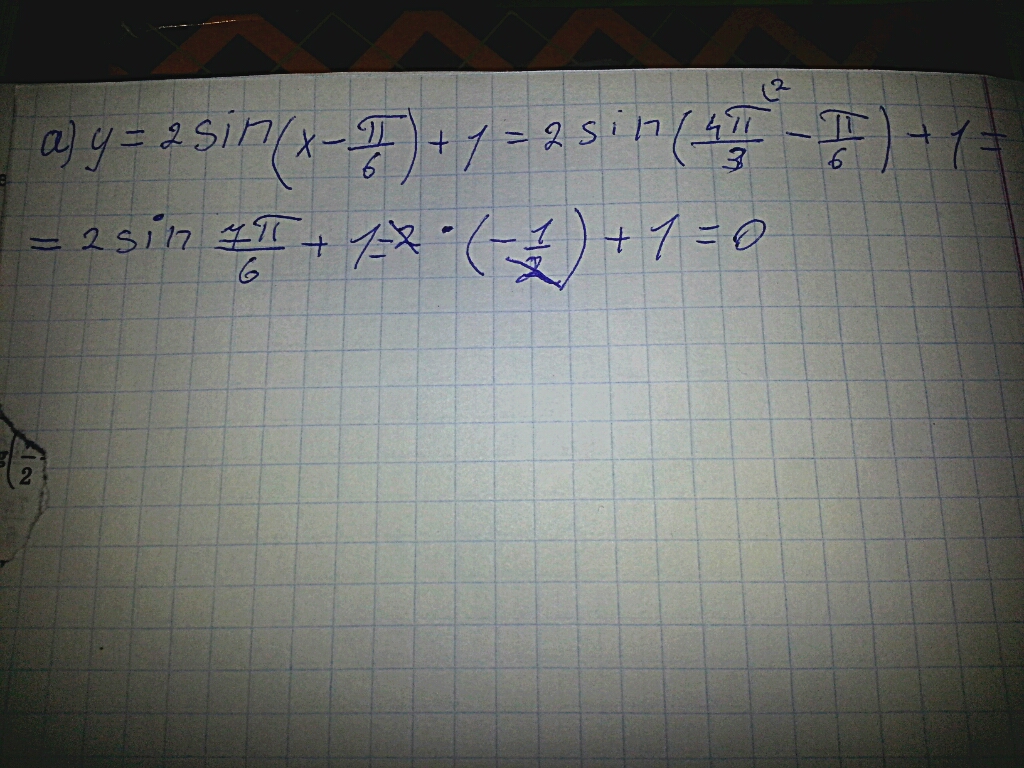 а) y = 2 sin(x - π/6) + 1 = 2 sin(4π/3 ⁽² - π/6) + 1 =
= 2 sin 7π/6 + 1 = 2 · (-1/2) + 1 = 0
1/2